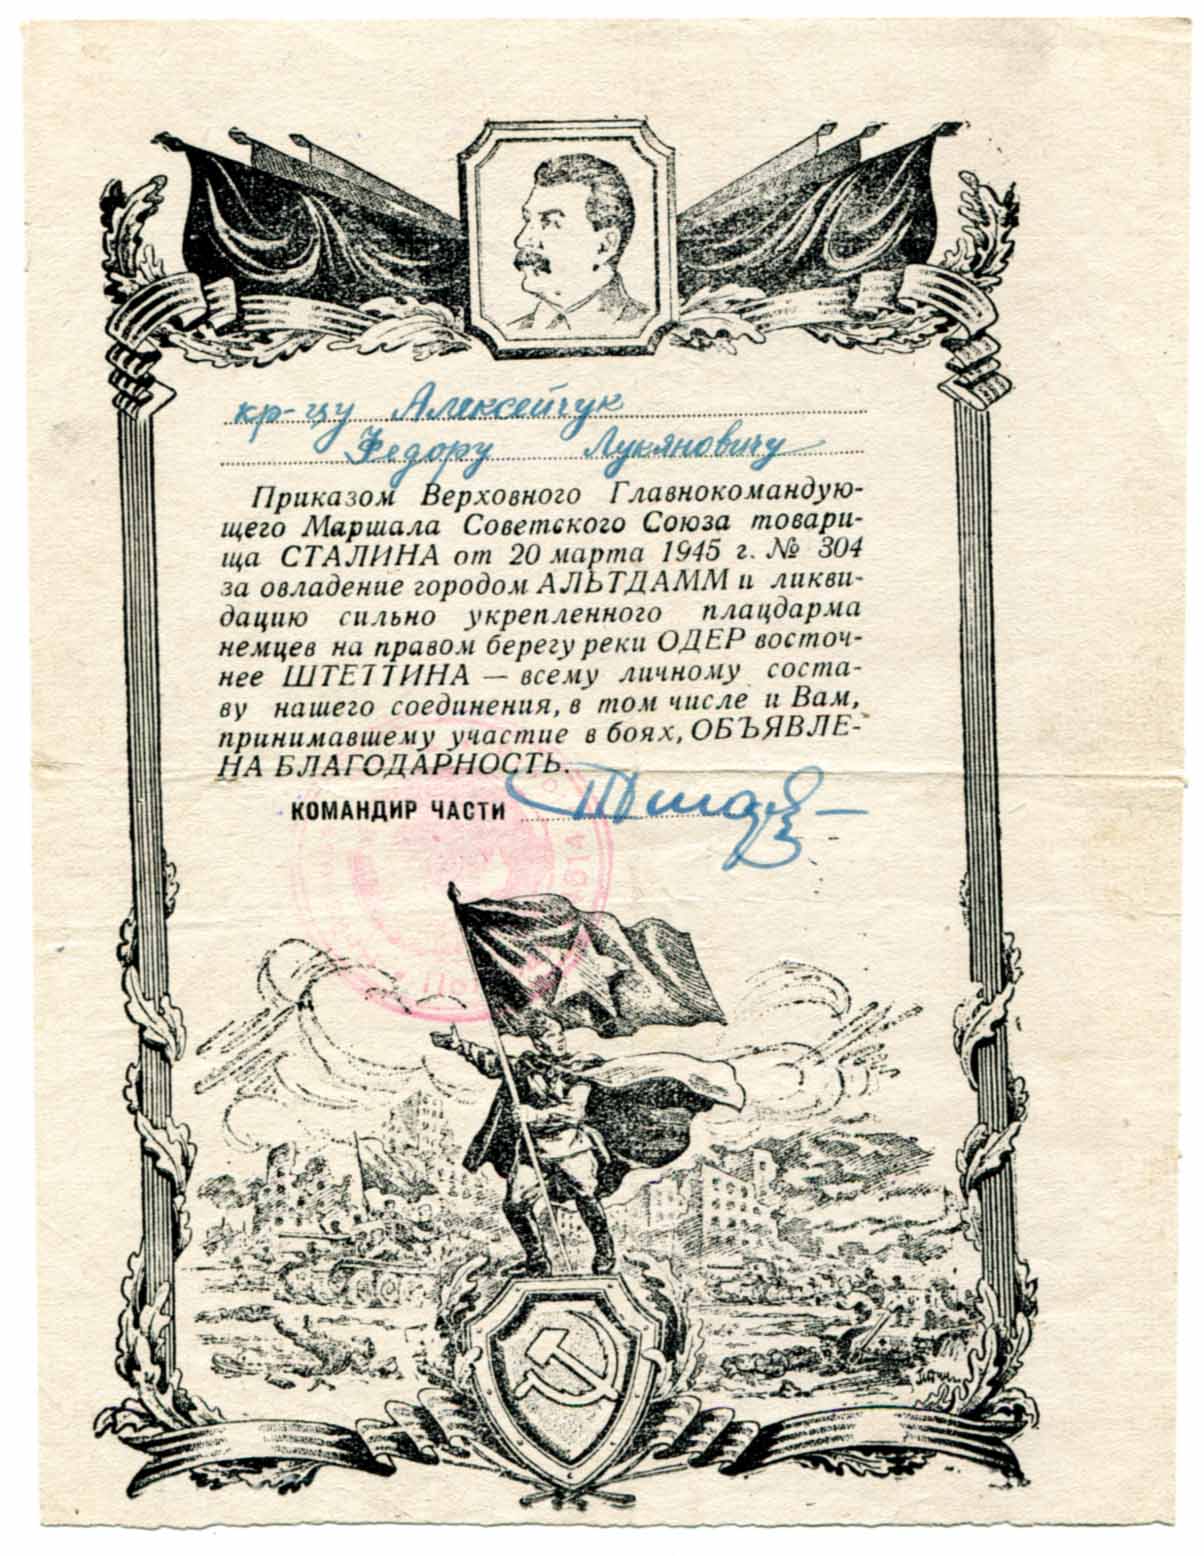 кр-цу Алексейчук
Федору Лукяновичу
Приказом Верховного Главнокомандую-
щего Маршала Советского Союза товари-
ща СТАЛИНА от 20 марта 1945 г. № 304
за овладение городом АЛЬТДАММ и ликви-
дацию сильно укрепленного плацдарма
немцев на правом берегу реки ОДЕР восточ-
нее ШТЕТТИНА — всему личному соста-
ву нашего соединения, в том числе и Вам,
принимавшему участие в боях, ОБЪЯВЛЕ-
НА БЛАГОДАРНОСТЬ.
КОМАНДИР ЧАСТИ